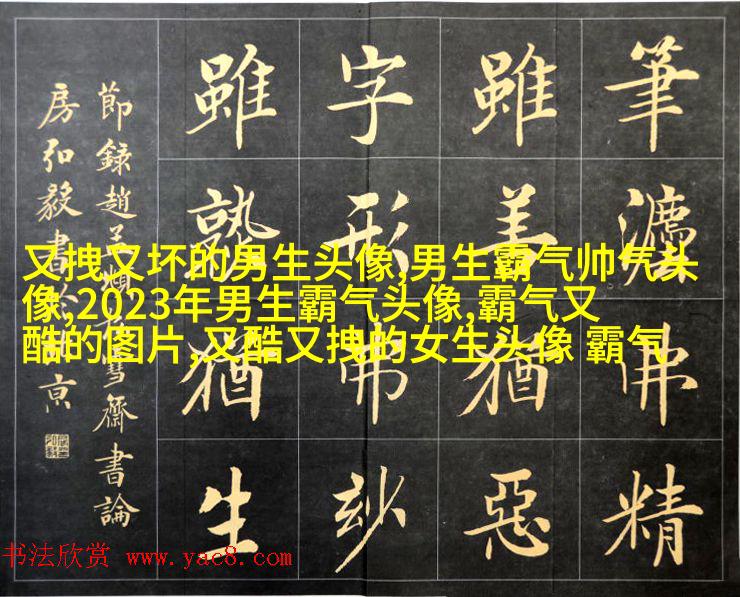 筆灋佛精
雖美猶惡
字形弗玅
雖熟猶生
節錄趙孟頫松雪齋書論
房弘毅書於北京
又拽又坏的男生头像,男生霸气帅气头
像,2023年男生霸气头像,霸气又
酷的图片,又酷又拽的女生头像 霸气
书法欣赏 www.yac8.com